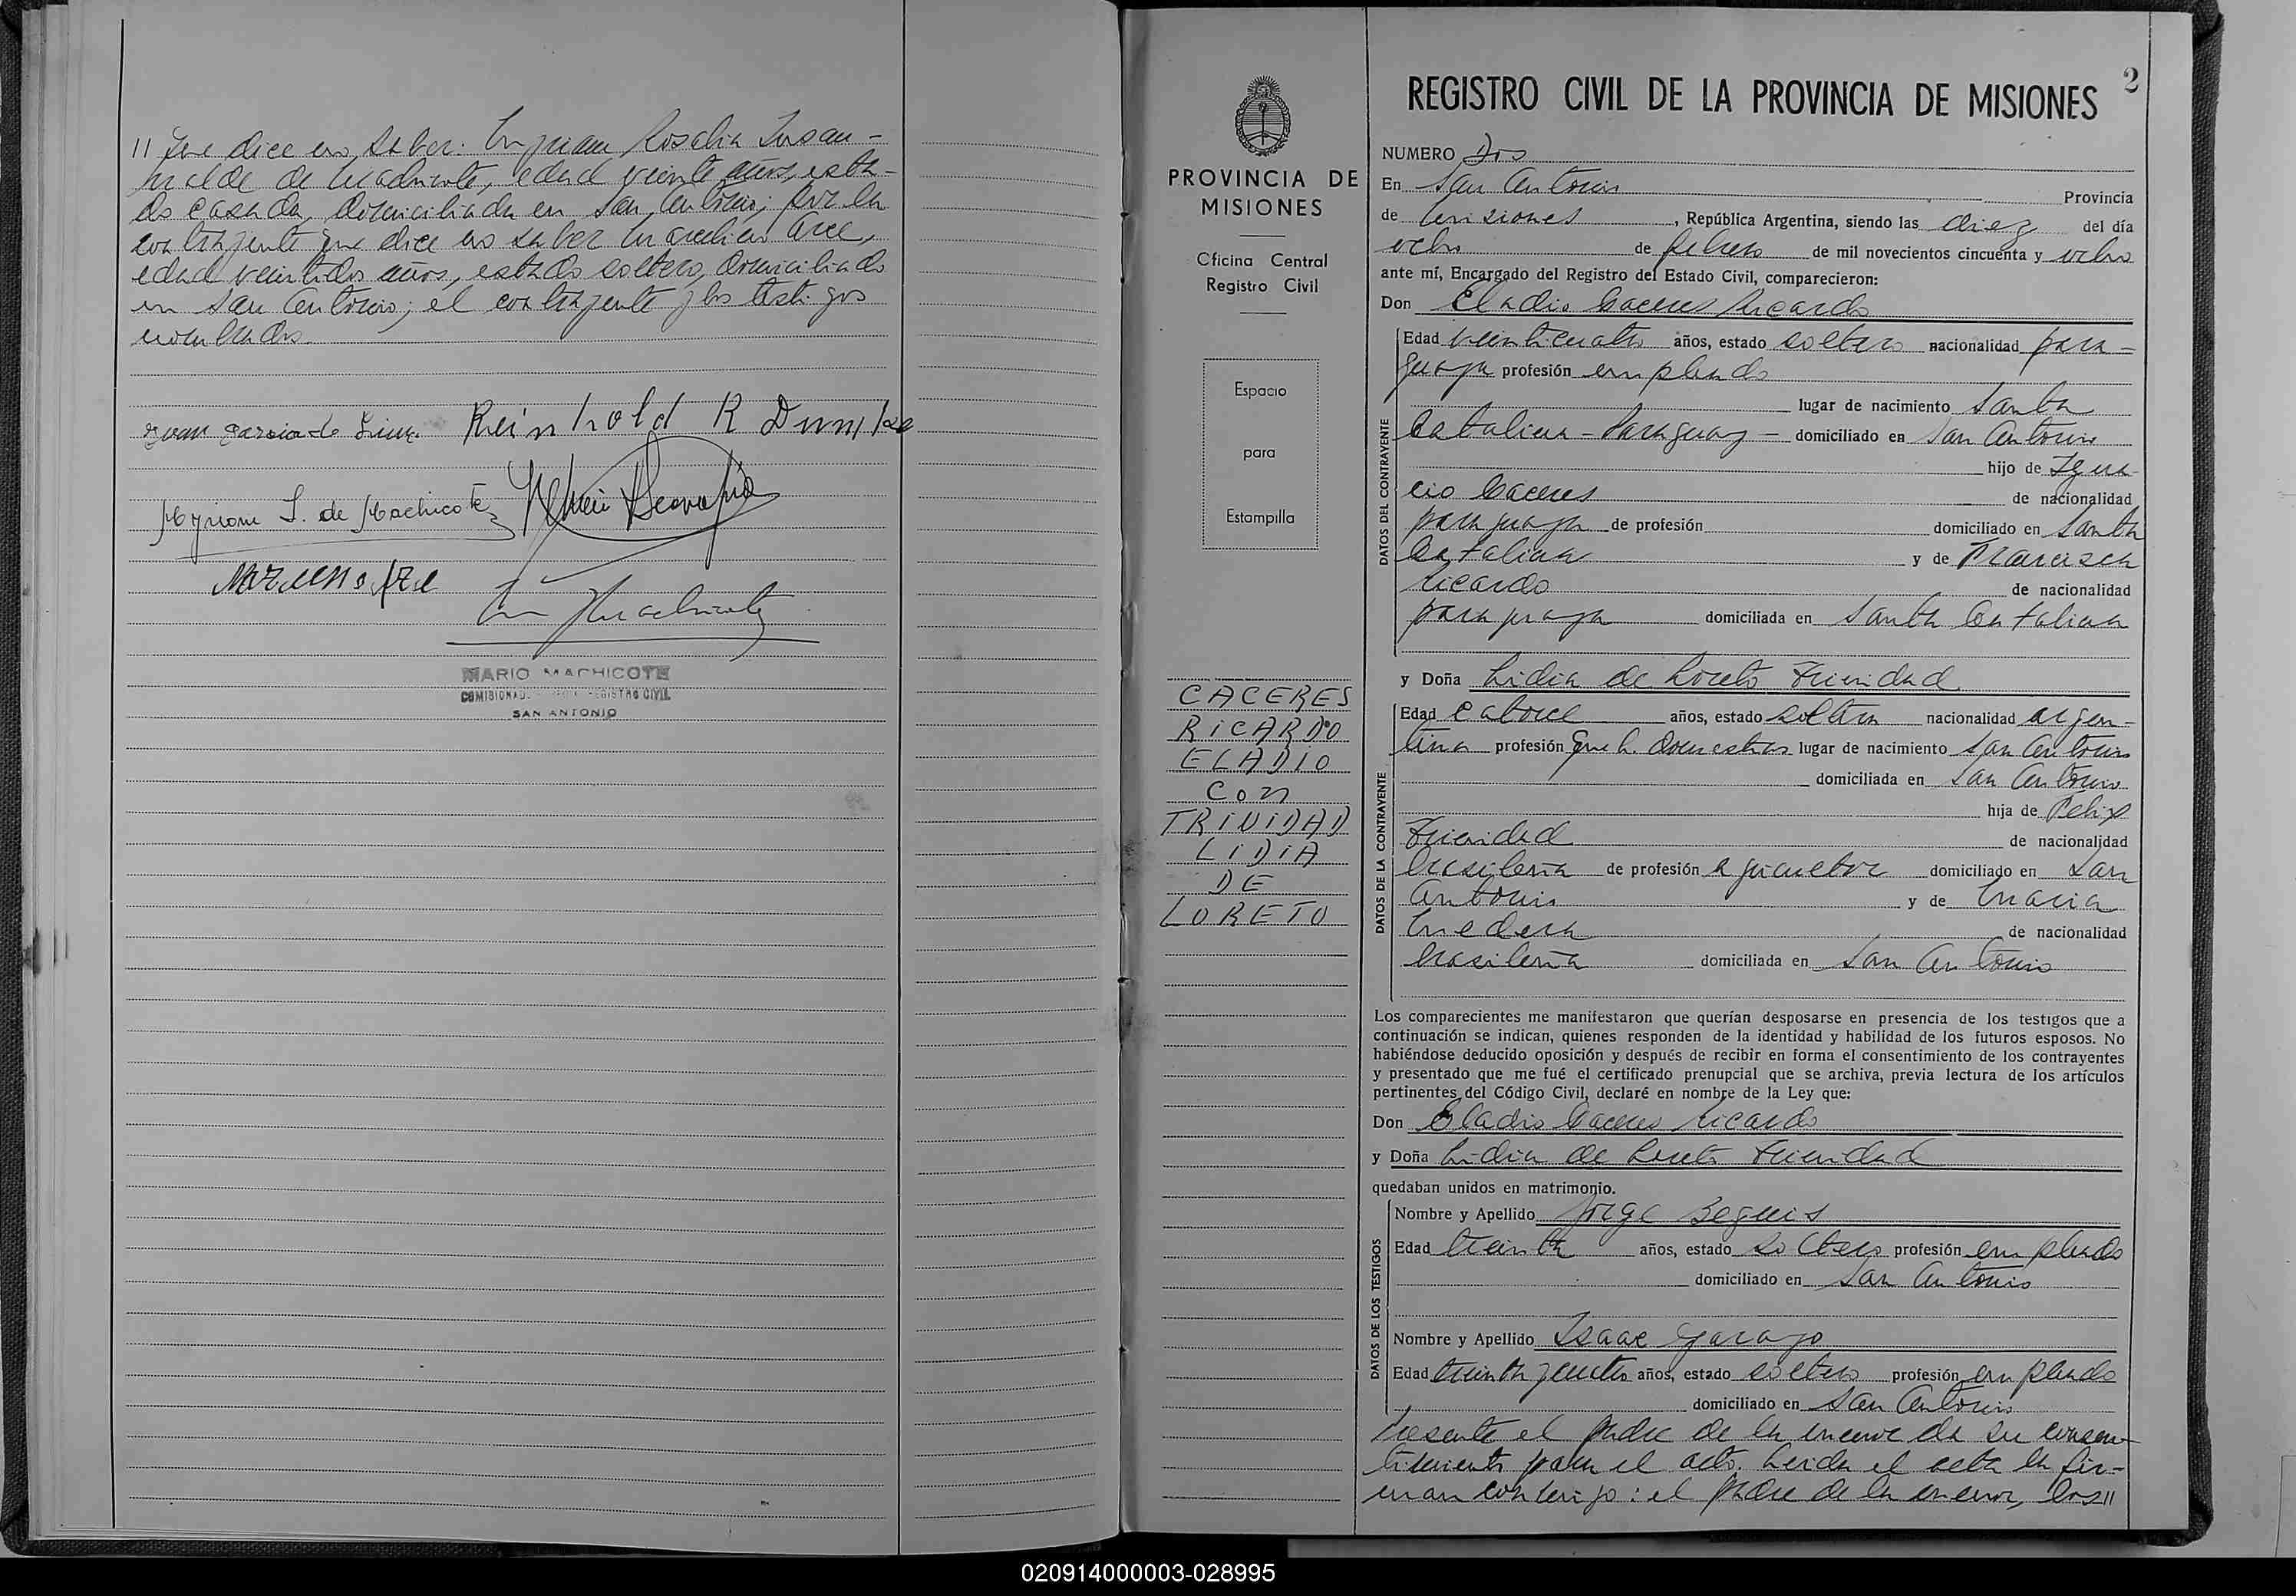 // que dice no saber: Myriam Rosalia Insau-
rralde de Machicote, edad veinte años, esta-
do casada, domiciliada en San Antonio; por la
contrayente que dice no saber Marcelino Arce,
edad veintidos años, estado soltero, domiciliado
en San Antonio; el contrayente y los testigos
nombrados.
Juan Garcia de Lima Reinhold R
Myriam I. de Machicote
MARIO MACHICOTE
REGISTRO CIVIL
SAN ANTONIO
2
REGISTRO CIVIL DE LA PROVINCIA DE MISIONES
PROVINCIA DE
MISIONES
Oficina Central
Registro Civil
Espacio
para
Estampilla
CACERES
RICARDO
ELADIO
CON
TRINIDAD
LIDIA
DE
LORETO
NUMERO Dos
En San Antonio Provincia
de Misiones, República Argentina, siendo las diez del día
ocho de febrero de mil novecientos cincuenta y ocho
ante mí, Encargado del Registro del Estado Civil, comparecieron:
Don Eladio Caceres Ricardo
DATOS DEL CONTRAYENTE
Edad veinticuatro años, estado soltero nacionalidad para-
guaya profesión empleado
lugar de nacimiento Santa
Catalina - Paraguay - domiciliado en San Antonio
hijo de Igna-
cio Caceres de nacionalidad
paraguaya de profesión domiciliado en Santa
Catalina y de Francisca
Ricardo de nacionalidad
paraguaya domiciliada en Santa Catalina
y Doña Lidia de Loreto Trinidad
DATOS DE LA CONTRAYENTE
Edad catorce años, estado soltera nacionalidad argen-
tina profesión queh. domesticos lugar de nacimiento San Antonio
domiciliada en San Antonio
hija de Felix
Trinidad de nacionalidad
brasileña de profesión agricultor domiciliado en San
Antonio y de Maria
Medera de nacionalidad
brasileña domiciliada en San Antonio
Los comparecientes me manifestaron que querían desposarse en presencia de los testigos que a
continuación se indican, quienes responden de la identidad y habilidad de los futuros esposos. No
habiéndose deducido oposición y después de recibir en forma el consentimiento de los contrayentes
y presentado que me fué el certificado prenupcial que se archiva, previa lectura de los artículos
pertinentes del Código Civil, declaré en nombre de la Ley que:
Don Eladio Caceres Ricardo
y Doña Lidia de Loreto Trinidad
quedaban unidos en matrimonio.
DATOS DE LOS TESTIGOS
Nombre y Apellido Jorge Beguis
Edad treinta años, estado soltero profesión empleado
domiciliado en San Antonio
Nombre y Apellido Isaac Garayo
Edad treinta y cuatro años, estado soltero profesión empleado
domiciliado en San Antonio
Presente el padre de la menor da su consen-
timiento para el acto. Leida el acta la fir-
man conmigo: el padre de la menor, los//
020914000003-028995